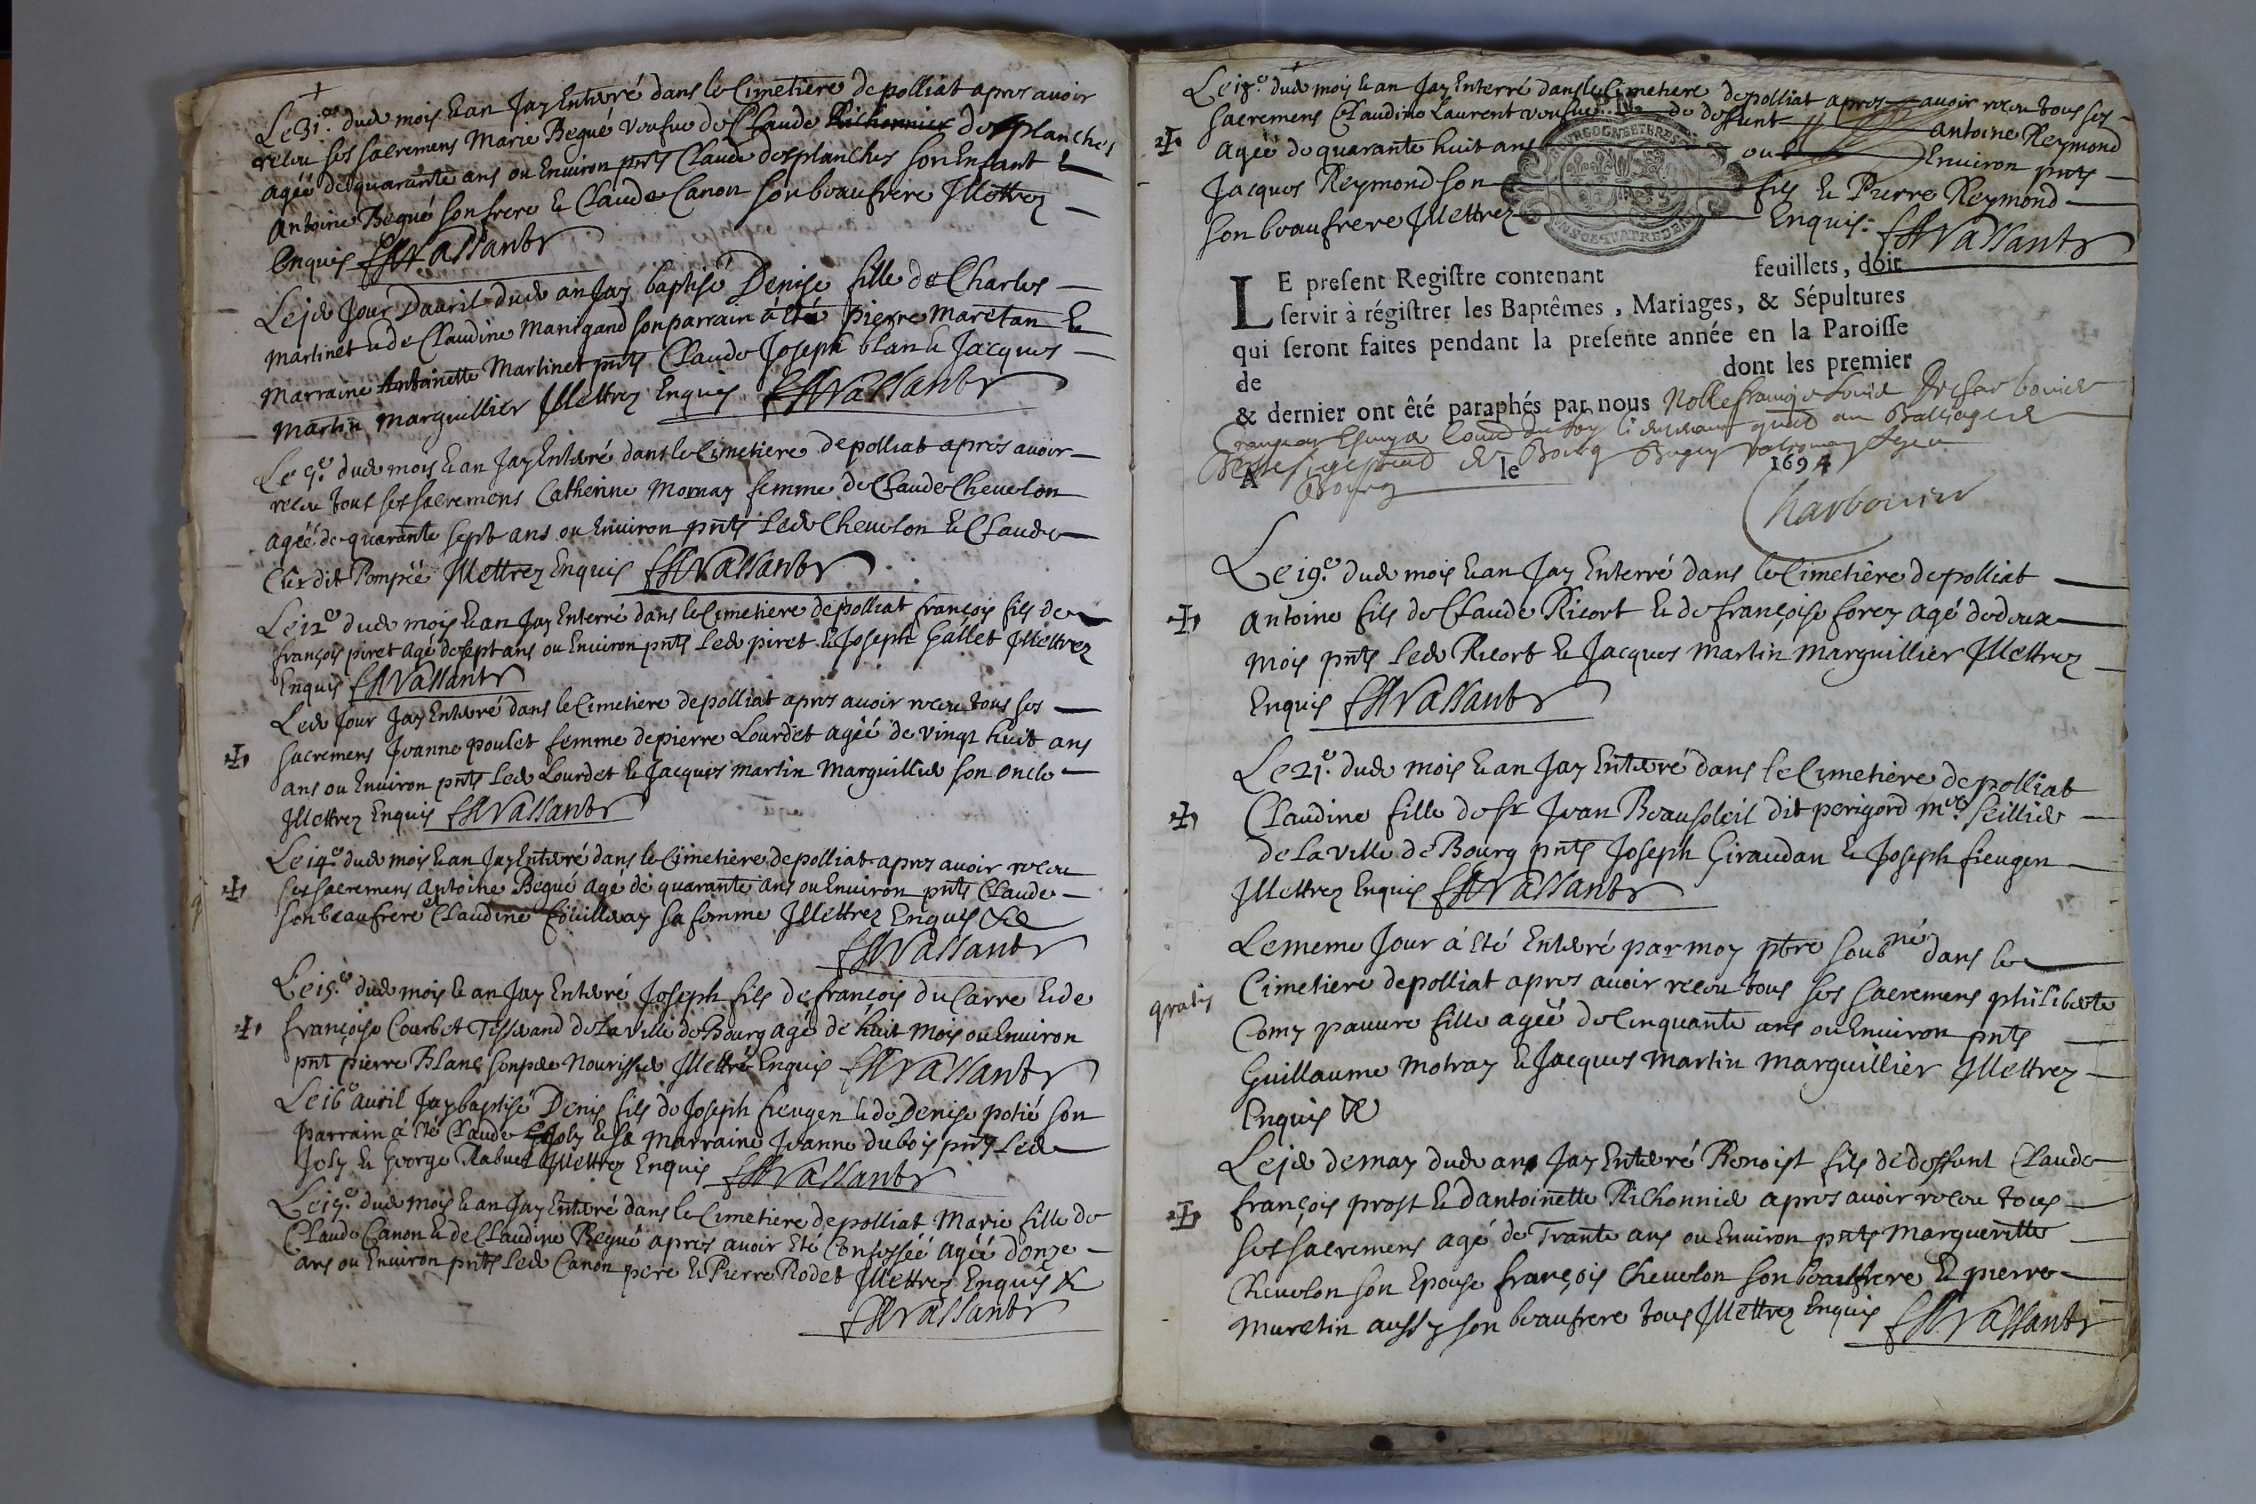 Le 31.e dud mois & an Jay Enterré dans le Cimetiere de polliat apres avoir
receu ses sacremens Marie Begué veufue de Claude Richonnier desplanches
agéé de quarante ans ou Environ pnts Claude desplanches son Enfant &
Antoine Begué son frere & Claude Canon son beaufrere Illettrez
Enquis Vassant
Le je Jour Dauril dud an Jay baptisé Denise fille de Charles
Martinet & de Claudine Marigand son parrain á été pierre Maretan &
Marraine Antoinette Martinet pnts Claude Joseph blan & Jacques
Martin Marguillier Illettrez Enquis Vassant
Le 9.e dud mois & an Jay Enterré dans le Cimetiere de polliat apres auoir
receu tous ses sacremens Catherine Mornay femme de Claude Cheuelon
agéé de quarante sept ans ou Environ pnts Led Cheuelon & Claude
Clerdit Pompéé Illettrez Enquis Vassant
Le 12.e dud mois & an Jay Enterré dans le Cimetiere de polliat françois fils de
françois piret agé de sept ans ou Environ pnts Led piret & Joseph Gallet Illettrez
Enquis Vassant
Led Jour Jay Enterré dans le Cimetiere de polliat apres auoir receu tous ses
sacremens Jeanne poulet femme de pierre Lourdet agéé de vingt huit ans
ans ou Environ pnts Led Lourdet & Jacques Martin Marguillier son oncle
Illettrez Enquis Vassant
Le 14.e dud mois & an Jay Enterré dans le Cimetiere de polliat apres auoir receu
ses sacremens Antoine Begué agé de quarante ans ou Environ pnts Claude
son beaufrere Claudine sa femme Illettrez Enquis
Vassant
Le 15.e dud mois & an Jay Enterré Joseph fils de françois du Carre & de
françoise Courbet Tisserand de La ville de Bourg agé de huit mois ou Environ
pnt pierre Blanc son pere Nourissier Illettré Enquis Vassant
Le 16.e auril Jay baptisé Denis fils de Joseph fieugen & de Denise potié son
parrain á été Claude Joly & sa marraine Jeanne dubois pnts Led
Joly & george Rabuel Illettrez Enquis Vassant
Le 19.e dud mois & an Jay Enterré dans le Cimetiere de polliat Marie fille de
Claude Canon & de Claudine Begué apres auoir été Confesséé agéé donze
ans ou Environ pnts Led Canon pere & Pierre Rodet Illettrez Enquis
Vassant
Le 18.e dud mois & an Jay Enterré dans le Cimetiere de polliat apres auoir receu tous ses
sacremens Claudine Laurent veufue de deffunt Antoine Reymond
Agéé de quarante huit ans ou Environ pnts
Jacques Reymond son fils & Pierre Reymond
son beaufrere Illettrez Enquis: Vassant
LE preſent Regiſtre contenant feuillets, doit
ſervir à régiſtrer les Baptêmes, Mariages, & Sépultures
qui ſeront faites pendant la preſente année en la Paroiſſe
de dont les premier
& dernier ont êté paraphés par nous Noble françois Louis de Charbonier
A Bourg le 1694
Charbonier
Le 19.e dud mois & an Jay Enterré dans le Cimetiere de polliat
Antoine fils de Claude Ricort & de françoise forez agé de deux
mois pnts Led Ricort & Jacques Martin Marguillier Illettrez
Enquis Vassant
Le 21.e dud mois & an Jay Enterré dans le Cimetiere de polliat
Claudine fille de sr Jean Beausoleil dit perigord mre Sellier
de La ville de Bourg pnts Joseph Giraudan & Joseph fieugen
Illettrez Enquis Vassant
Le meme Jour á été Enterré par moy pbre soubné dans le
gratis
Cimetiere de polliat apres auoir receu tous ses sacremens philiberte
Comy pauure fille agéé de Cinquante ans ou Environ pnts
Guillaume Motray & Jacques Martin Marguillier Illettrez
Enquis
Le je de may dud an Jay Enterré Benoist fils de deffunt Claude
françois prost & dantoinette Richonnier apres auoir receu tous
ses sacremens agé de Trante ans ou Environ pnts Margueritte
Cheuelon son Epouse françois Cheuelon son beaufrere & pierre
Muretin aussy son beaufrere tous Illettrez Enquis Vassant